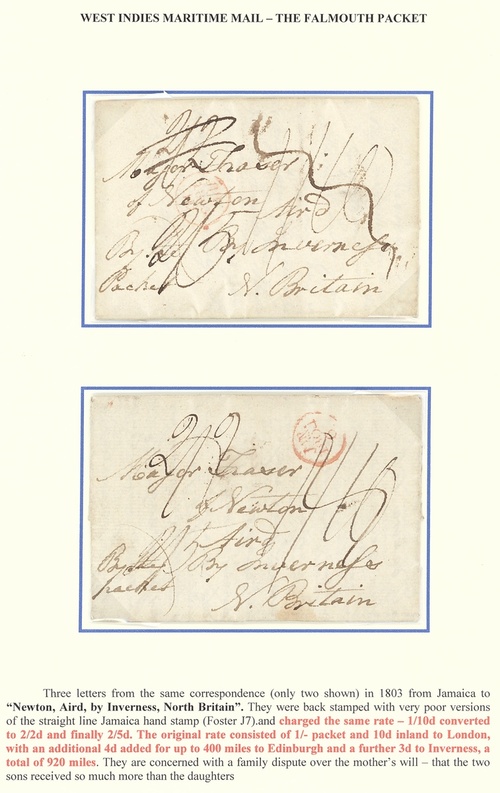 WEST INDIES MARITIME MAIL – THE FALMOUTH PACKET
Major Fraser
of Newton
Aird
By the By Inverness
Packet N. Britain
2/2
1/10
Major Fraser
of Newton
Aird
By the By Inverness
packet N. Britain
Three letters from the same correspondence (only two shown) in 1803 from Jamaica to
“Newton, Aird, by Inverness, North Britain”. They were back stamped with very poor versions
of the straight line Jamaica hand stamp (Foster J7).and charged the same rate – 1/10d converted
to 2/2d and finally 2/5d. The original rate consisted of 1/- packet and 10d inland to London,
with an additional 4d added for up to 400 miles to Edinburgh and a further 3d to Inverness, a
total of 920 miles. They are concerned with a family dispute over the mother’s will – that the two
sons received so much more than the daughters